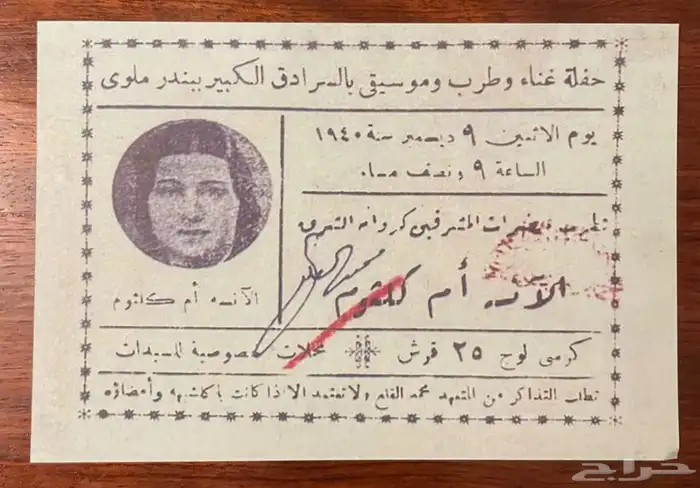 حفلة غناء وطرب وموسيقى بالسرادق الكبير ببندر ملوى
يوم الاثنين ٩ ديسمبر سنة ١٩٤٠
الساعة ٩ ونصف مساء
تطرب حضرات المشرفين كروانه الشرق
الآنسه أم كلثوم
الآنسه أم كلثوم
كرسى لوج ٢٥ قرش
محلات خصوصية للسيدات
تطلب التذاكر من المتعهد محمد القلع ولا تعتمد الا اذا كانت باكلشيهه وأمضاؤه
حراج